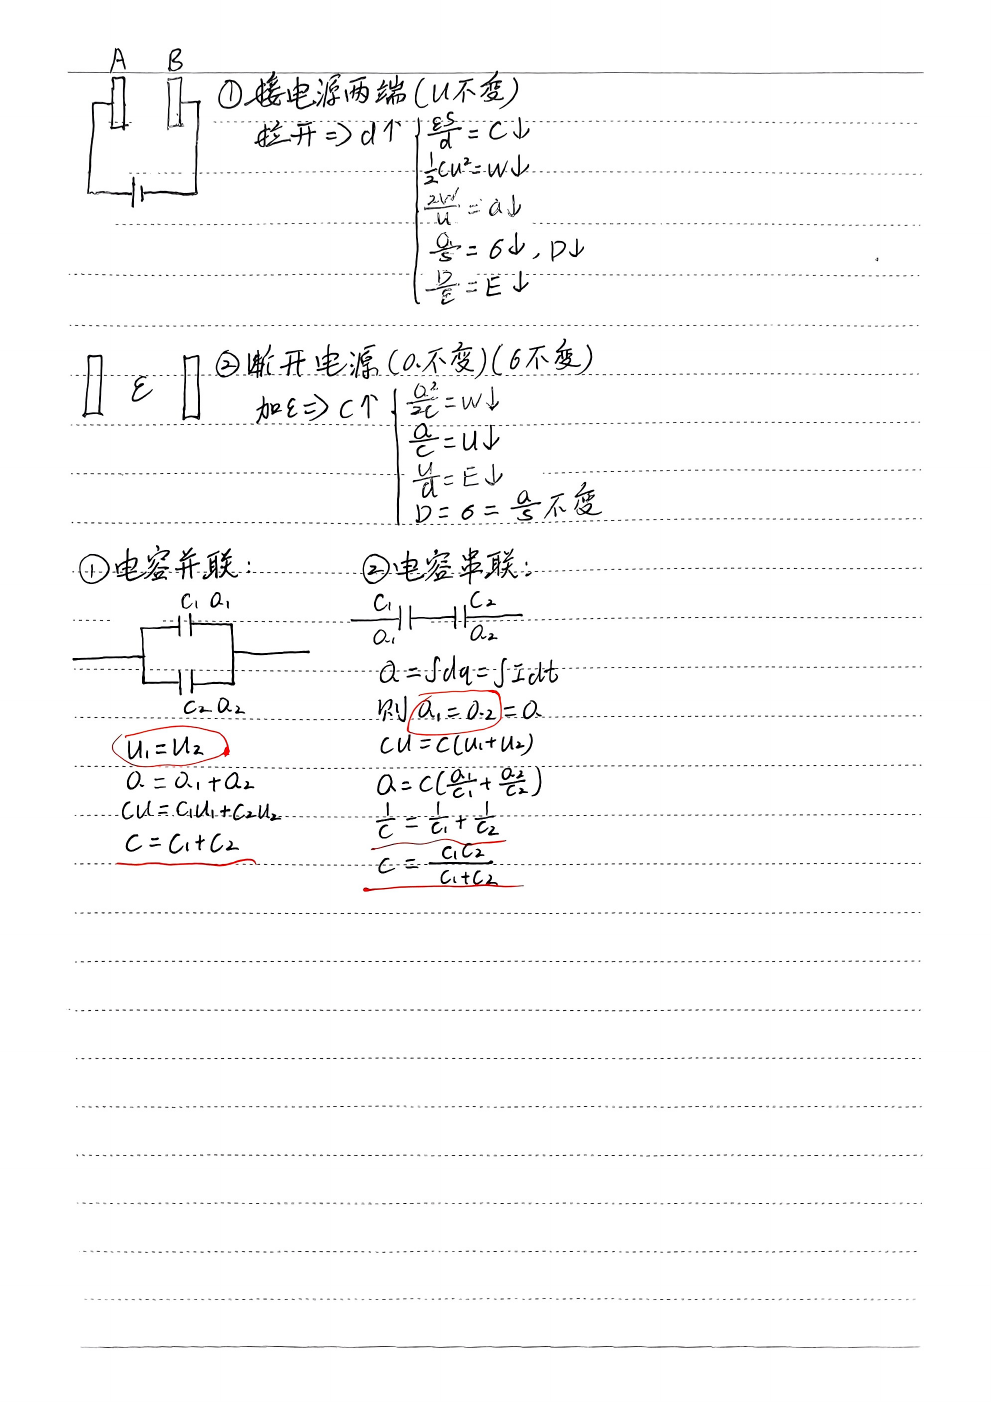 A B
①接电源两端(U不变)
拉开⇒d↑
εS/d=C↓
1/2CU²=W↓
2W/U=Q↓
Q/S=σ↓,D↓
D/ε=E↓
ε
②断开电源(Q不变)(σ不变)
加ε⇒C↑
Q²/2C=W↓
Q/C=U↓
U/d=E↓
D=σ=Q/S不变
①电容并联:
C₁ Q₁
C₂ Q₂
U₁=U₂
Q=Q₁+Q₂
CU=C₁U₁+C₂U₂
C=C₁+C₂
②电容串联:
C₁ C₂
Q₁ Q₂
Q=∫dq=∫Idt
则Q₁=Q₂=Q
CU=C(U₁+U₂)
Q=C(Q₁/C₁+Q₂/C₂)
1/C=1/C₁+1/C₂
C=C₁C₂/C₁+C₂